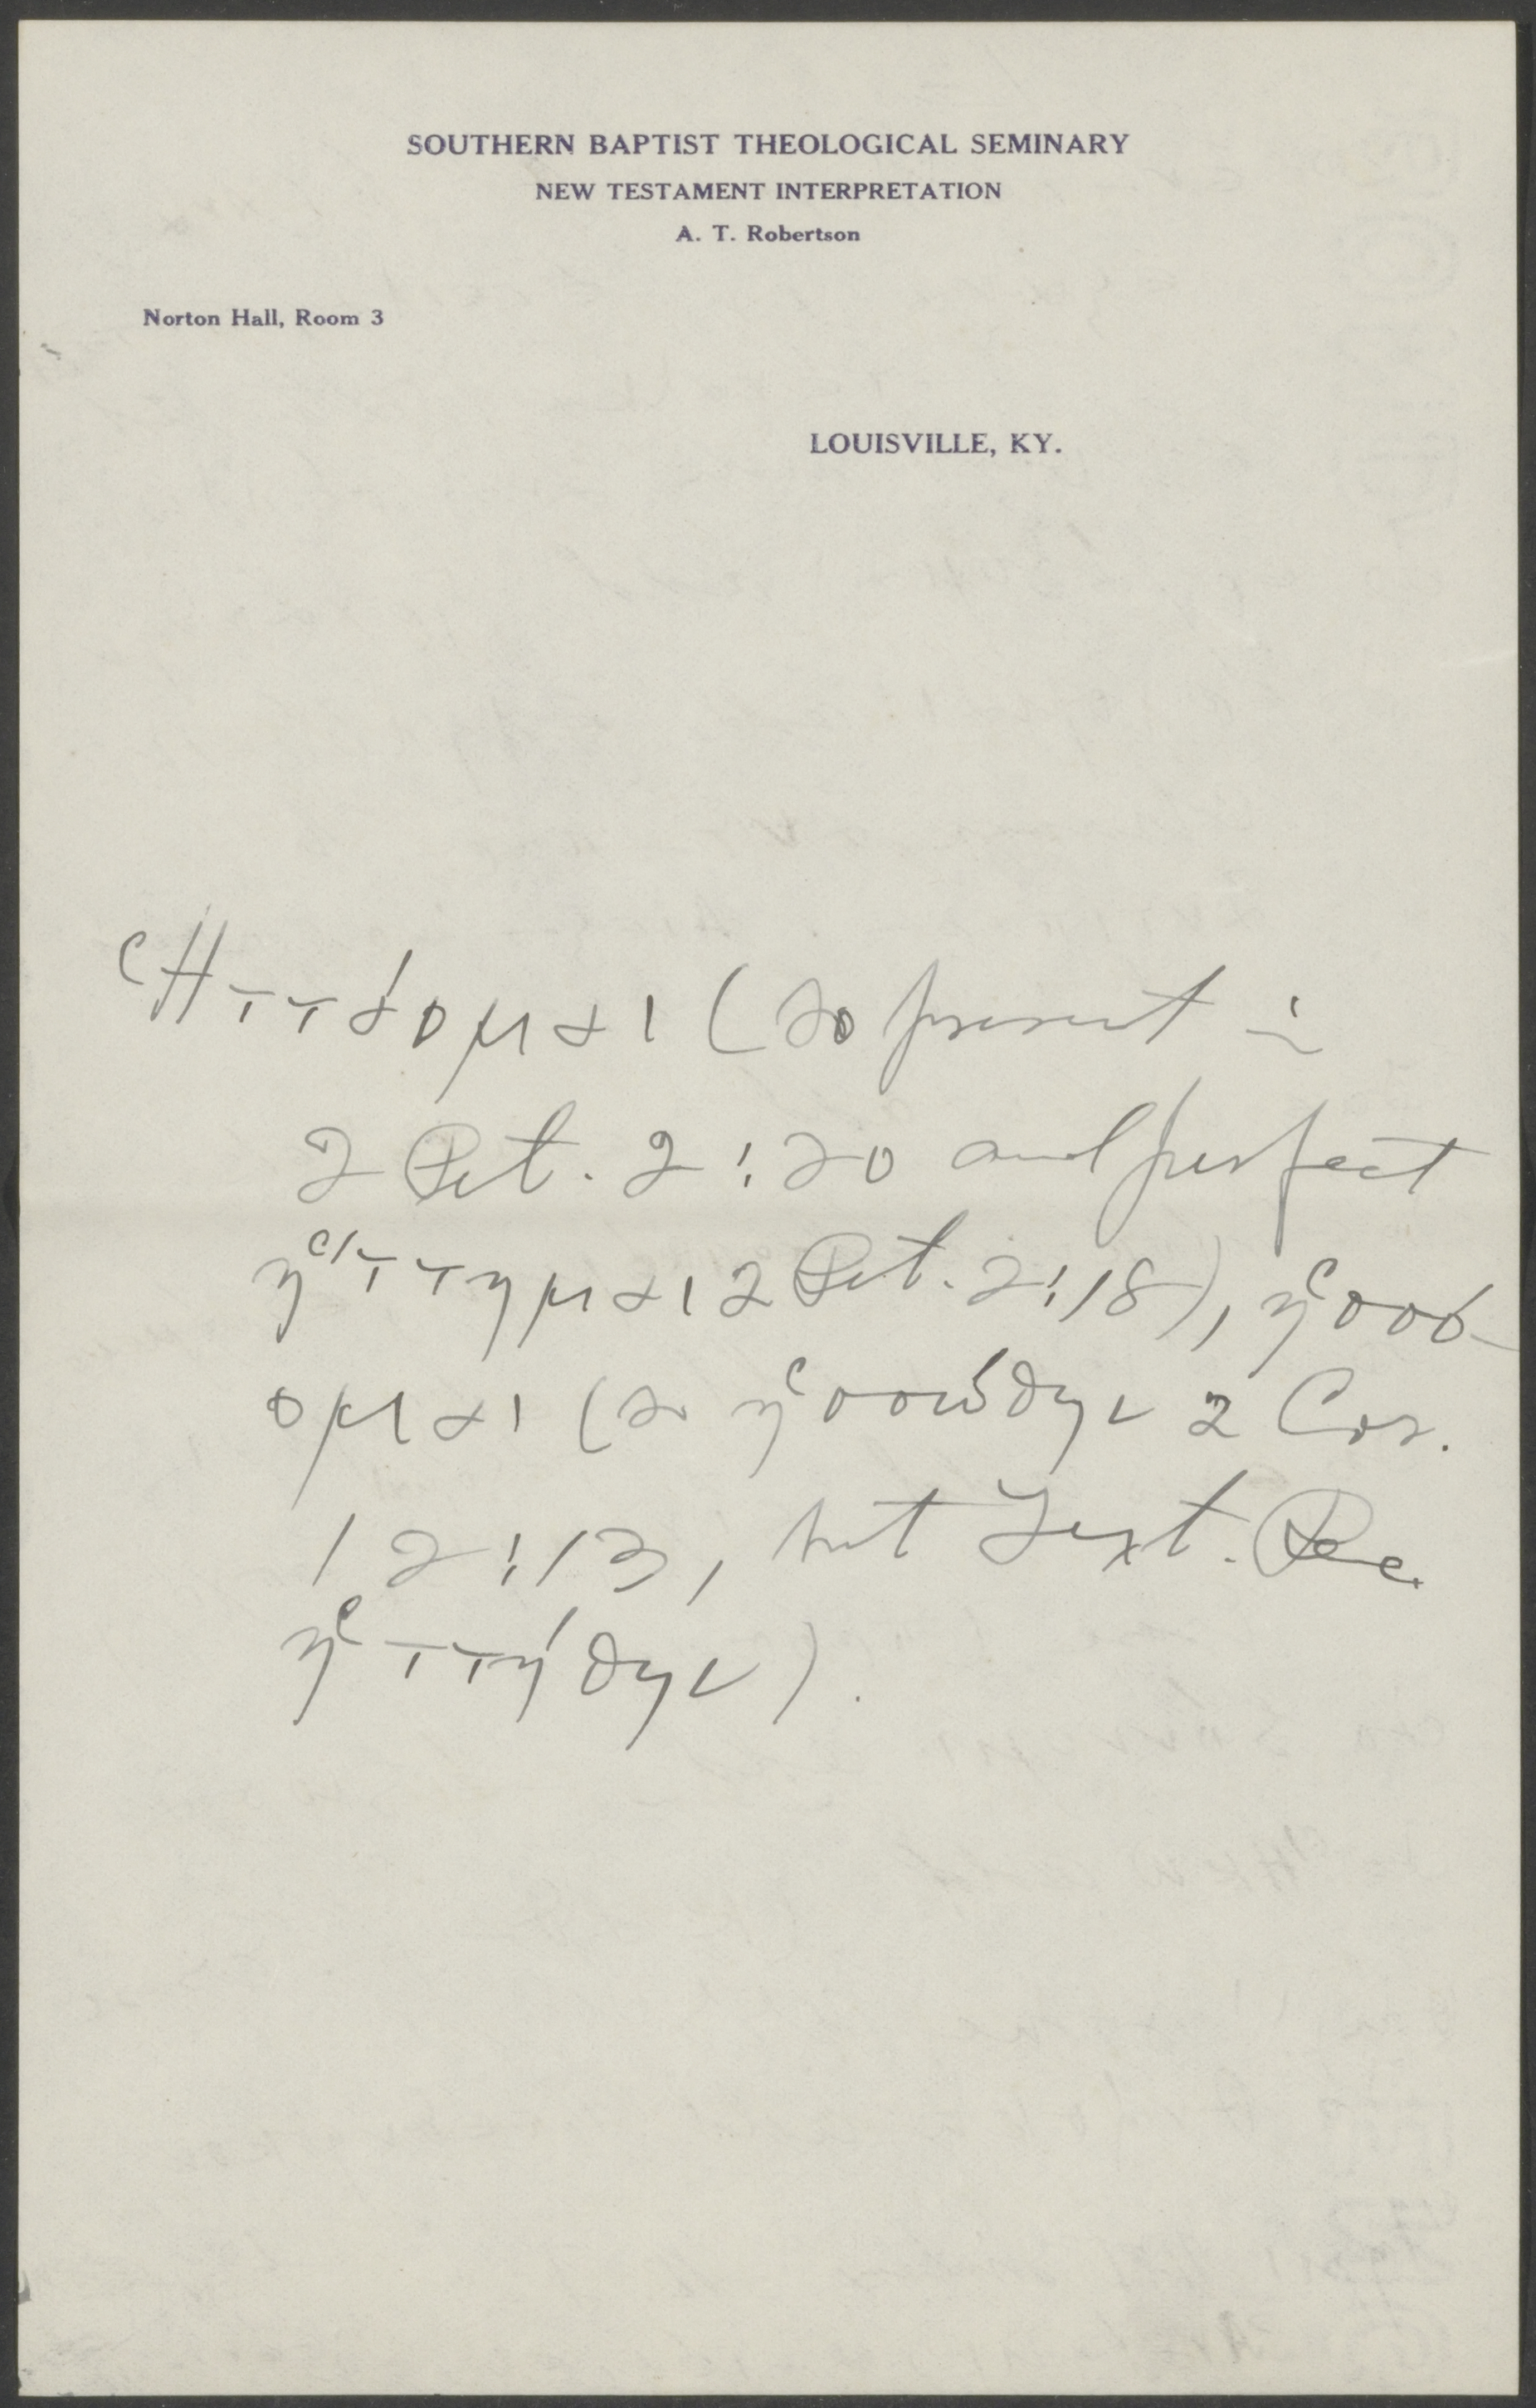 SOUTHERN BAPTIST THEOLOGICAL SEMINARY
NEW TESTAMENT INTERPRETATION
A. T. Robertson
Norton Hall, Room 3
LOUISVILLE, KY.
Ἡττάομαι (so present in
2 Pet. 2:20 and perfect
ἥττημαι 2 Pet. 2:18), ἡσσό-
ομαι (so ἡσσώθην 2 Cor.
12:13, but Text. Rec.
ἡττήθην).